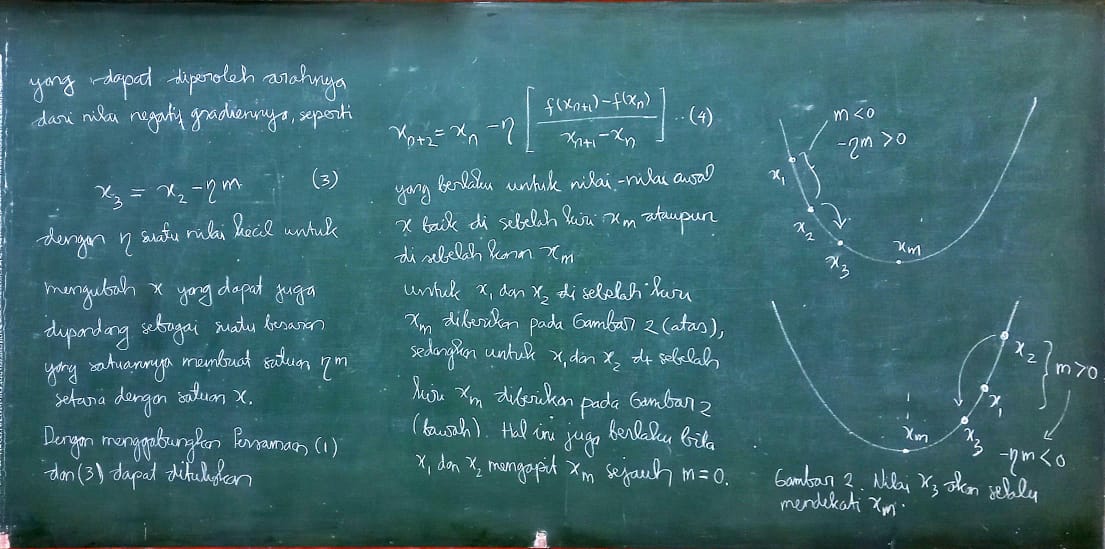 yang dapat diperoleh arahnya
dari nilai negatif gradiennya, seperti
x₃ = x₂ - ηm (3)
dengan η suatu nilai kecil untuk
mengubah x yang dapat juga
dipandang sebagai suatu besaran
yang satuannya membuat satuan ηm
setara dengan satuan x.
Dengan menggabungkan Persamaan (1)
dan (3) dapat dituliskan
xₙ₊₂ = xₙ - η [ (f(xₙ₊₁) - f(xₙ)) / (xₙ₊₁ - xₙ) ] ..(4)
yang berlaku untuk nilai-nilai awal
x baik di sebelah kiri xₘ ataupun
di sebelah kanan xₘ
untuk x₁ dan x₂ di sebelah kiri
xₘ diberikan pada Gambar 2 (atas),
sedangkan untuk x₁ dan x₂ di sebelah
kiri xₘ diberikan pada Gambar 2
(bawah). Hal ini juga berlaku bila
x₁ dan x₂ mengapit xₘ sejauh m=0.
m<0
-ηm >0
x₁
x₂
x₃
xₘ
x₂
m>0
x₁
xₘ
x₃
-ηm<0
Gambar 2. Nilai x₃ akan selalu
mendekati xₘ.